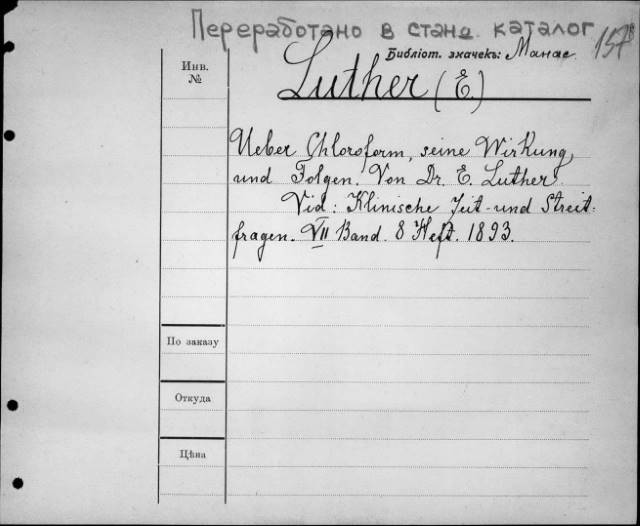 Переработано в станд. каталог
Библіот. значекъ: Манас.
157в
Инв.
№
Luther (E.)
Ueber Chloroform, seine Wirkung,
und Folgen. Von Dr. E. Luther.
Vid: Klinische Zeit- und Streit-
fragen. VII Band. 8 Heft. 1893.
По заказу
Откуда
Цѣна